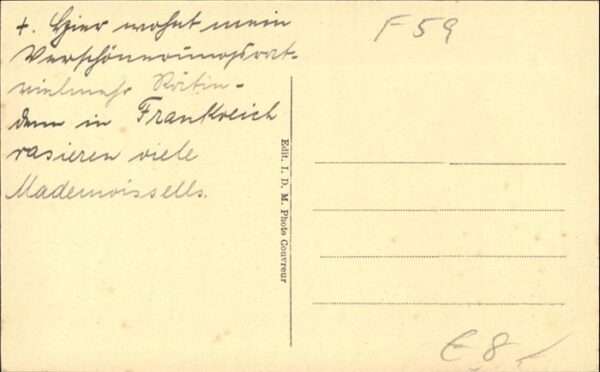 +. Hier wohnt mein
Verschönerungsrat-
vielmehr Rätin-
denn in Frankreich
rasieren viele
Mademoissells.
F 59
Edit. I. D. M. Photo Couvreur
€ 8,-